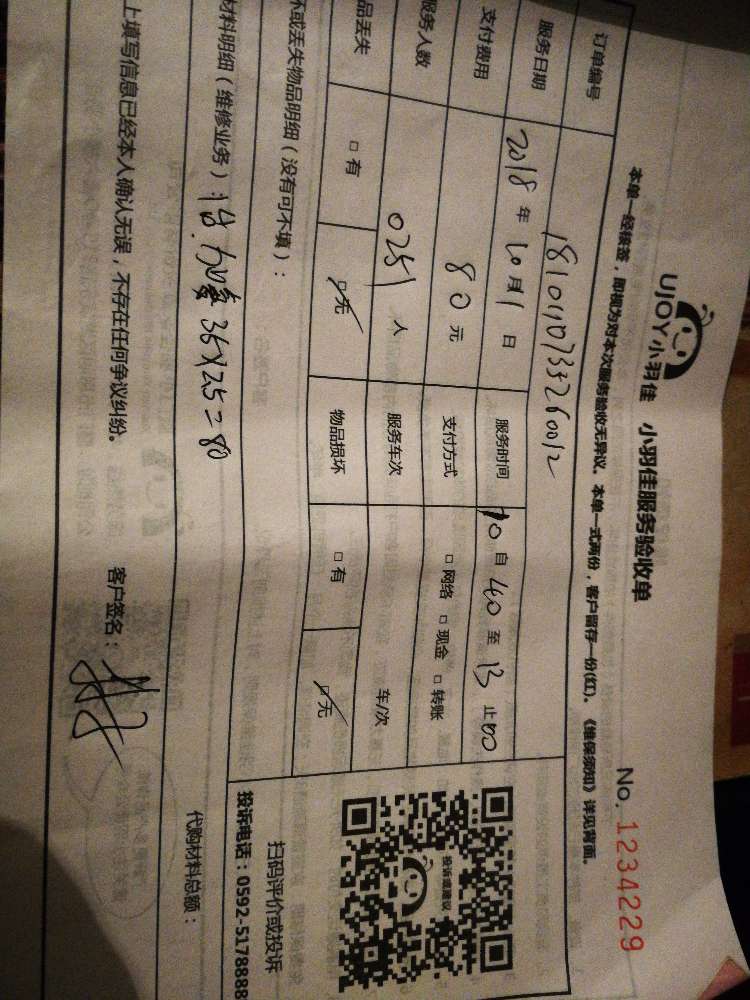 UJOY小羽佳 小羽佳服务验收单
No. 1234229
本单一经核签，即视为对本次服务验收无异议。本单一式两份，客户留存一份(红)。《维保须知》详见背面。
订单编号
服务日期 2018年10月1日 服务时间 10自40至13止00
支付费用 80元 支付方式 □网络 □现金 □转账
服务人数 0251人 服务车次 车/次
品丢失 □有 □无 物品损坏 □有 □无
坏或丢失物品明细（没有可不填）：
投诉或建议
扫码评价或投诉
投诉电话：0592-5178888
材料明细（维修业务）： 35 25=80
代购材料总额：
上填写信息已经本人确认无误，不存在任何争议纠纷。 客户签名：